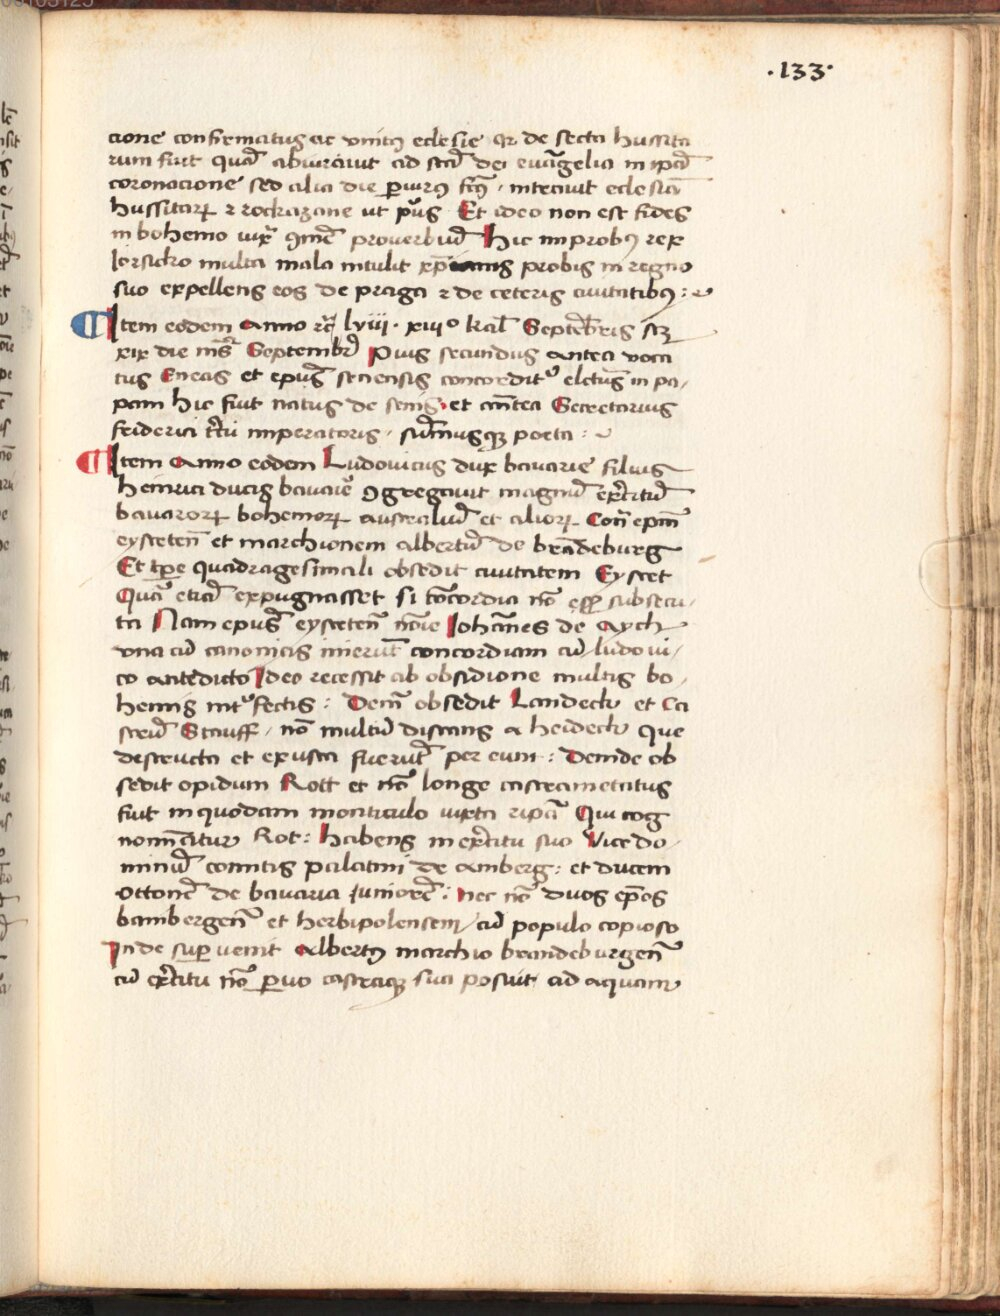 ·133·
cione confirmatus ac vnitꝰ eclesie qr de secta hussita
rum fuit quā abiurauit ad scā dei ewāgelia in ipā
coronacione sed alia die ꝑiurꝰ fcꝰ intrauit eclesiā
hussitaꝝ ⁊ rockazane ut pꝰus Et ideo non est fides
in bohemo iuxͣ ꝯmūe proverbiū Hic improbꝰ rex
Jorsicko multa mala intulit xp̄ianis probis in regno
suo expellens eos de praga ⁊ de ceteris ciuitatibꝰ :~
¶ Item eodem Anno rc̄ lviii · xiiiº kal̄ Septēbris sꝫ
xix die mēs̄ Septembr̄ Pius secundus antea voca
tus Eneas et epūs senensis concorditͦ electus in pa/
pam Hic fuit natus de senis et antea Secretarius
feiderici t̄cii imperatoris / sum̄usqꝫ poeta : ~
¶ Item Anno eodem Ludovicus dux bavarie filius
heinrici ducis bavarie ꝯgregauit magnū exͤrcitū
bavaroꝝ bohemoꝝ australiū et alioꝝ Cont̄ epm̄
eysteten̄ et marchionem albertū de brādeburg
Et tp̄e quadragesimali obsedit ciuitatem Eystet
Quā etiā expugnasset si cōcordia nō eēt subsecu/
ta Nam epūs eysteten̄ nōie Johānes de Aych
vna cū canonicis inierūt concordiam cū ludoui/
co antedicto Ideo recessit ab obsidione multis bo/
hemis intͦfectis : Dein̄ obsedit Landeck et Ca
strū Stauff / nō multū distans a heideck que
destructa et exusta fuerūt per eum : Deinde ob
sedit opidum Rott et nō longe castrametatus
fuit in quodam monticulo iuxta ripā Qui cog
nominatur Rot : habens in exͤrcitu suo Vicedo/
minū comitis palatini de amberg : et ducem
Ottonē de bavaria juniorē : nec nō duos ep̄os
bambergen̄ et herbipolensem / cū populo copioso
Inde superuenit Albertꝰ marchio brandeburgen̄
cū exͤrcitu nō ꝑuo castraqꝫ sua posuit ad aquam